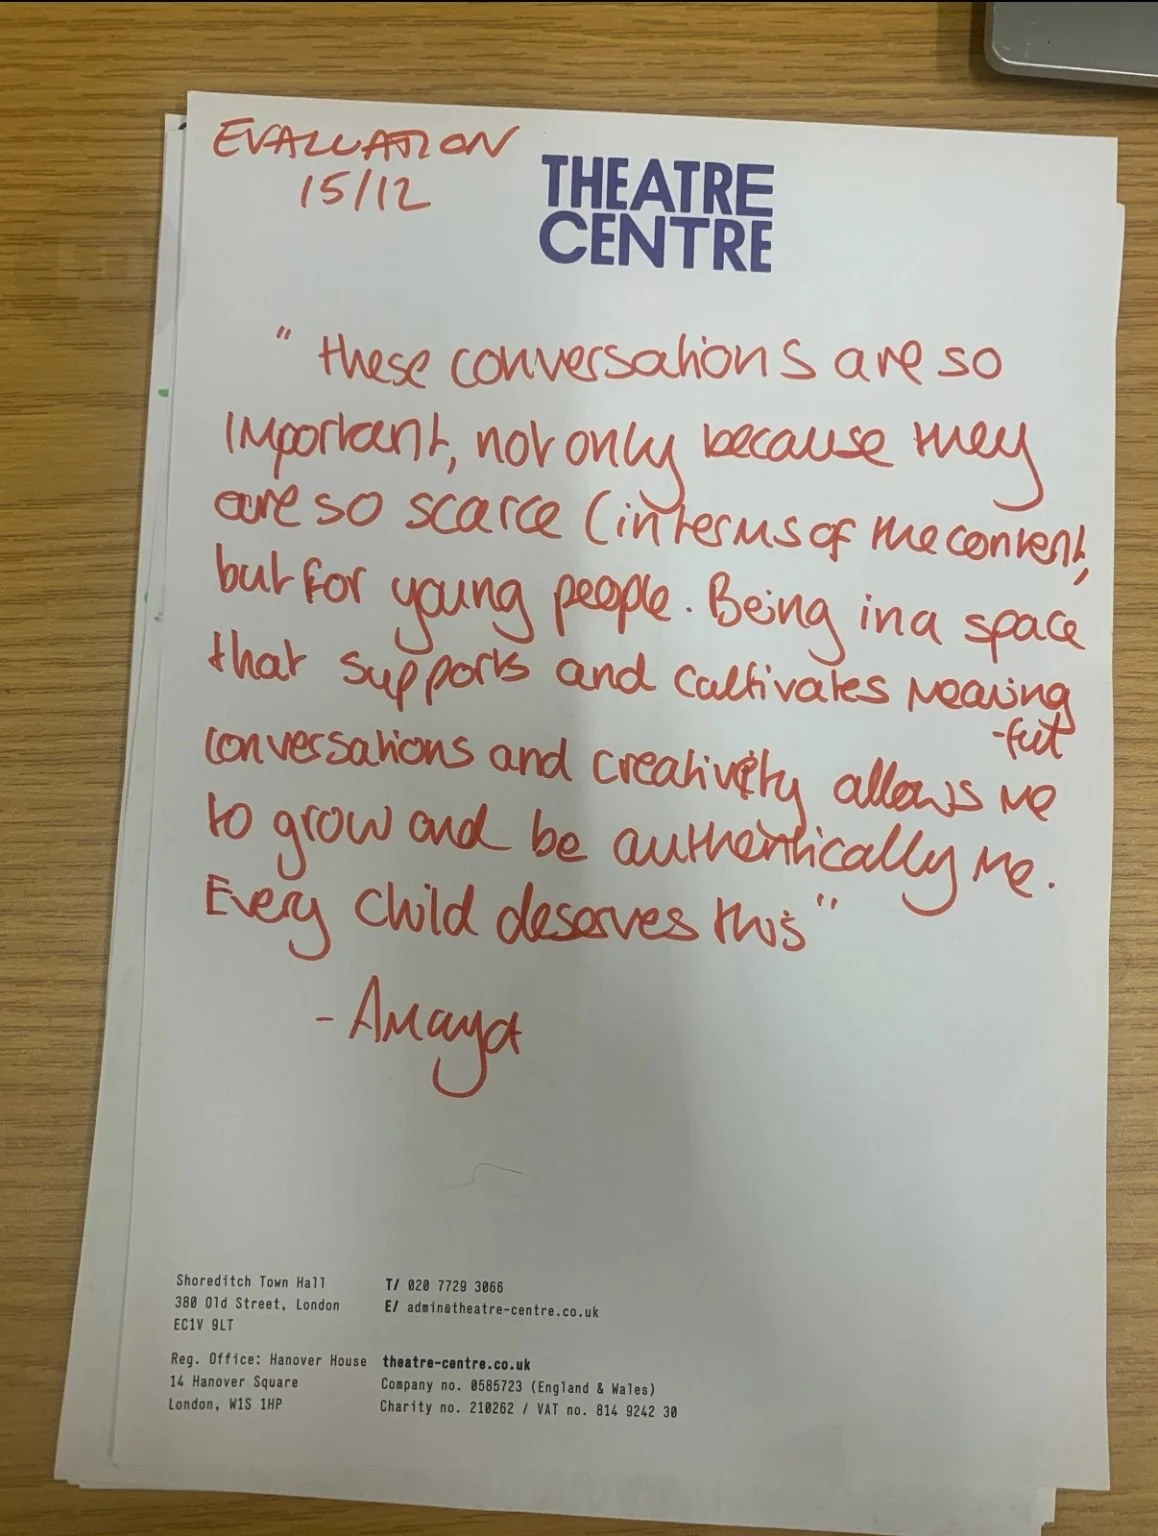 EVALUATION
15/12
THEATRE
CENTRE
" these conversations are so
important, not only because they
are so scarce (in terms of the content,
but for young people. Being in a space
that supports and cultivates meaning
-ful
conversations and creativity allows me
to grow and be authentically me.
Every child deserves this"
- Amaya
Shoreditch Town Hall
380 Old Street, London
EC1V 9LT
T/ 020 7729 3066
E/ admin@theatre-centre.co.uk
Reg. Office: Hanover House
14 Hanover Square
London, W1S 1HP
theatre-centre.co.uk
Company no. 0585723 (England & Wales)
Charity no. 210262 / VAT no. 814 9242 30